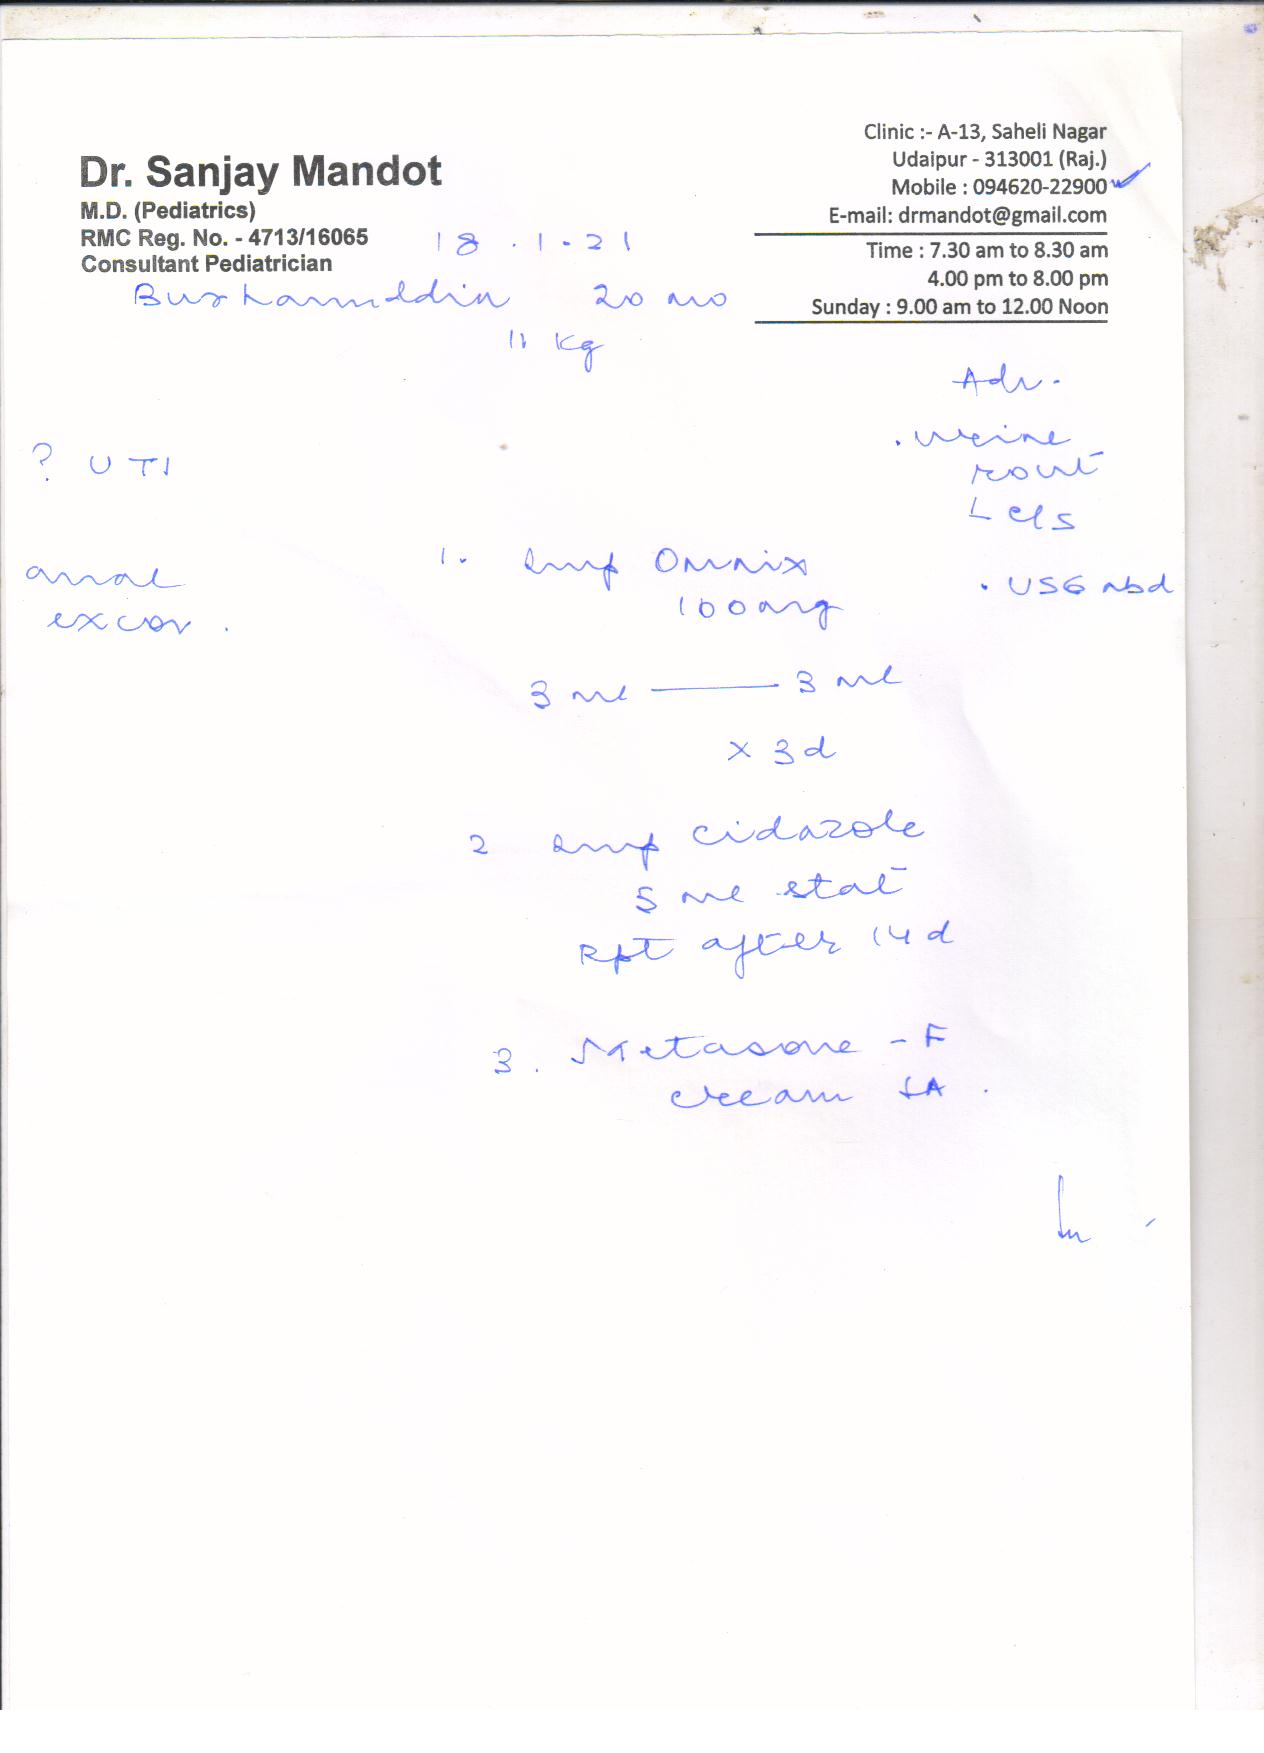 Dr. Sanjay Mandot
M.D. (Pediatrics)
RMC Reg. No. - 4713/16065
Consultant Pediatrician
Clinic :- A-13, Saheli Nagar
Udaipur - 313001 (Raj.)
Mobile : 094620-22900
E-mail: drmandot@gmail.com
Time : 7.30 am to 8.30 am
4.00 pm to 8.00 pm
Sunday : 9.00 am to 12.00 Noon
18.1.21
Burhanuddin 20 mo
11 Kg
Adv.
. Urine
rout
+ c/s
. USG abd
? UTI
anal
excor.
1. Omnix
100mg
3 ml — 3 ml
x 3d
2 cidazole
5 ml stat
Rpt after 14 d
3. Metasone - F
cream LA.